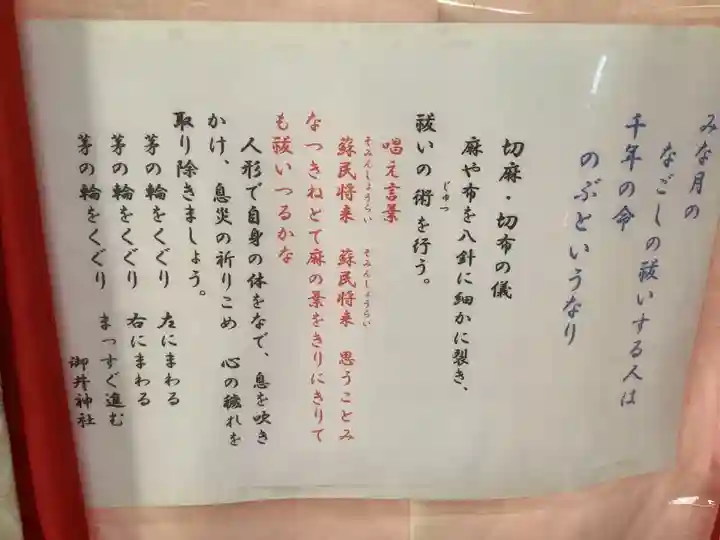 みな月の
なごしの祓いする人は
千年の命
のぶというなり
切麻・切布の儀
麻や布を八針に細かに裂き、
じゅつ
祓いの術を行う。
唱え言葉
そみんしょうらい そみんしょうらい
蘇民将来 蘇民将来 思うことみ
なつきねとて麻の葉をきりにきりて
も祓いつるかな
人形で自身の体をなで、息を吹き
かけ、息災の祈りこめ 心の穢れを
取り除きましょう。
茅の輪をくぐり 左にまわる
茅の輪をくぐり 右にまわる
茅の輪をくぐり まっすぐ進む
御井神社